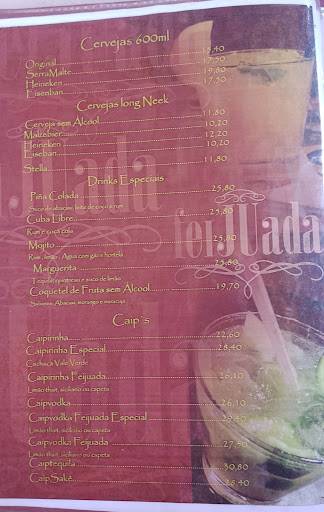 Cervejas 600ml
Original 18,40
SerraMalte 17,50
Heineken 19,80
Eisenban 17,50
Cervejas long Neek
Cerveja sem Alcool 11,80
Malzebier 10,20
Heineken 12,20
Eiseban 10,20
Stella 11,80
Drinks Especiais
Piña Colada 25,80
Suco de abacaxi, leite de coco e rum
Cuba Libre 25,80
Rum e coca cola
Mojito 25,80
Rum, limão, Agua com gás e hortelã
Marguerita 25,80
Tequila, e suco de limão
Coquetel de Fruta sem Alcool 19,70
Sabores: Abacaxi, morango e maracujá
Caip's
Caipirinha 22,60
Caipirinha Especial 28,40
Cachaça Vale Verde
Caipirinha Feijuada 26,10
Limão thait, siciliano ou capeta
Caipvodka 26,10
Caipvodka Feijuada Especial 29,80
Limão thait, siciliano ou capeta
Caipvodka Feijuada 27,50
Limão thait, siciliano ou capeta
Caiptequila 30,80
CaipSakê 28,40